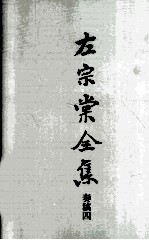 左宗棠全集
奏稿四